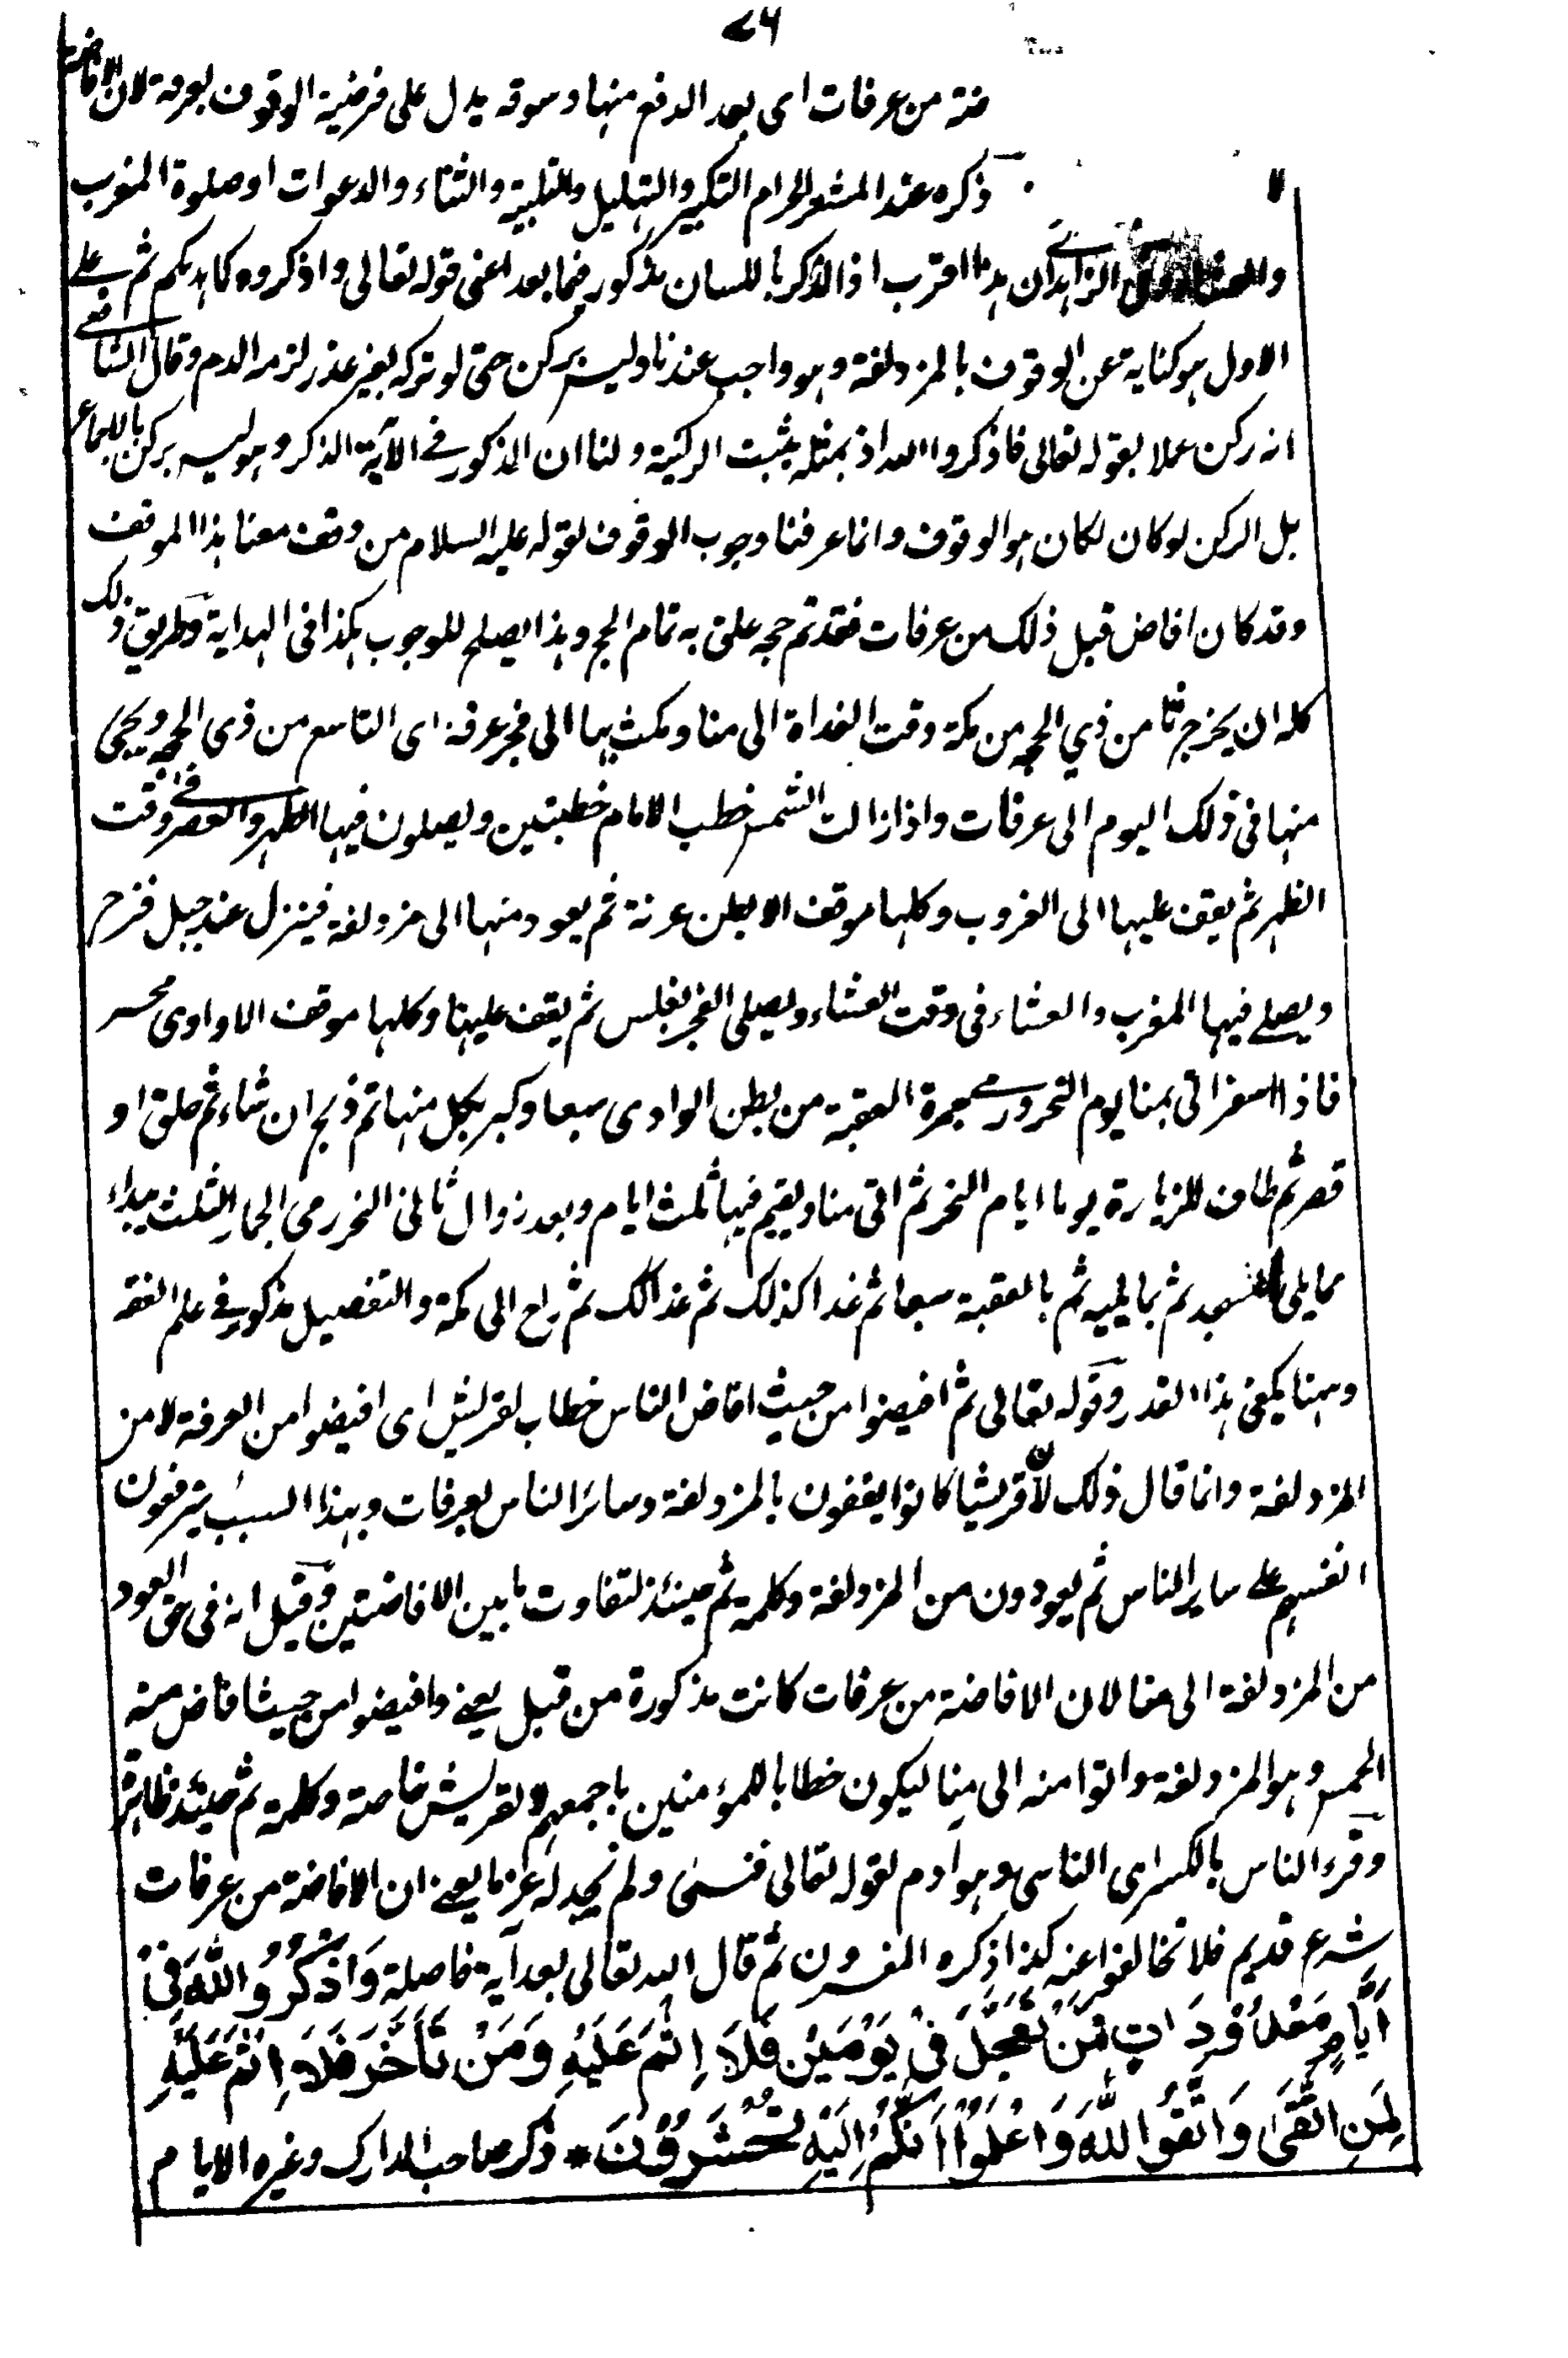 ٧٦
ضة من عرفات اى بعد الدفع منها وسوقه يدل على فرضية الوقوف بعرفة لان الافاضة
لا ذكره عند المشعر الحرام التكبير والتهليل والتلبية والثناء والدعوات او صلوة المغرب
والعشاء الزاهدى ان هذا اقرب اذ الذكر باللسان مذكور فيما بعد اعنى قوله تعالى واذكروه كما هديكم ثم على
الاول هو كناية عن الوقوف بالمزدلفة وهو واجب عندنا وليس بركن حتى لو تركه بغير عذر لزمه الدم وقال الشافعى
انه ركن عملا بقوله تعالى فاذكروا الله اذ بمثله يثبت الركنية ولنا ان المذكور فى الآية الذكر وهو ليس بركن بالاجماع
بل الركن لو كان لكان هو الوقوف وانما عرفنا وجوب الوقوف لقوله عليه السلام من وقف معنا هذا الموقف
وقد كان افاض قبل ذلك من عرفات فقد تم حجه علق به تمام الحج وهذا يصلح للوجوب هكذا فى الهداية وطريق ذلك
كله ان يخرج ثامن ذي الحجه من مكة وقت الغداة الى منا ومكث بها الى فجر عرفة اى التاسع من ذى الحجه ويجئ
منها فى ذلك اليوم الى عرفات واذا زالت الشمس خطب الامام خطبتين ويصلون فيها الظهر والعصر فى وقت
الظهر ثم يقف عليها الى الغروب وكلها موقف الا بطن عرنة ثم يعود منها الى مزدلفة فينزل عند جبل قزح
ويصلے فيها المغرب والعشاء فى وقت العشاء ويصلى الفجر بغلس ثم يقف عليها وكلها موقف الا وادى محسر
فاذا اسفر اتى بمنا يوم النحر ورمى جمرة العقبة من بطن الوادى سبعا وكبر بكل منها ثم ذبح ان شاء ثم حلق او
قصر ثم طاف للزيارة يوما ايام النحر ثم اتى منا ويقيم فيها ثلث ايام وبعد زوال ثانى النحر رمى الجمار الثلث يبداء
مما يلى المسجد ثم بما يليه ثم بالعقبة سبعا ثم غدا كذلك ثم غدا كذلك ثم راح الى مكة والتفصيل مذكور فى علم الفقه
وههنا يكفى هذا القدر وقوله تعالى ثم افيضوا من حيث افاض الناس خطاب لقريش اى افيضوا من العرفة لا من
المزدلفة وانما قال ذلك لان قريشا كانوا يقفون بالمزدلفة وسائر الناس بعرفات وبهذا السبب يترفعون
انفسهم على ساير الناس ثم يعودون من المزدلفة وكلمة ثم حينئذ لتفاوت ما بين الافاضتين وقيل انه فى حق العود
من المزدلفة الى منا لان الافاضة من عرفات كانت مذكورة من قبل يعنے وافيضوا من حيث افاض منه
الحمس وهو المزدلفة واتوا منه الى منا ليكون خطابا للمؤمنين باجمعهم لا لقريش خاصة وكلمة ثم حينئذ ظاهرة
وقرء الناس بالكسر اى الناسى وهو ادم لقوله تعالى فنسى ولم نجد له عزما يعنے ان الافاضة من عرفات
شرع قديم فلا تخالفوا عنه كذا ذكره المفسرون ثم قال الله تعالى بعد آية فاصلة وَاذْكُرُوا اللّٰهَ فِىْ
اَيَّامٍ مَّعْدُوْدَاتٍ فَمَنْ تَعَجَّلَ فِىْ يَوْمَيْنِ فَلَاۤ اِثْمَ عَلَيْهِ وَمَنْ تَاَخَّرَ فَلَاۤ اِثْمَ عَلَيْهِ
لِمَنِ اتَّقٰى وَاتَّقُوا اللّٰهَ وَاعْلَمُوْۤا اَنَّكُمْ اِلَيْهِ تُحْشَرُوْنَ * ذكر صاحب المدارك وغيره الايام